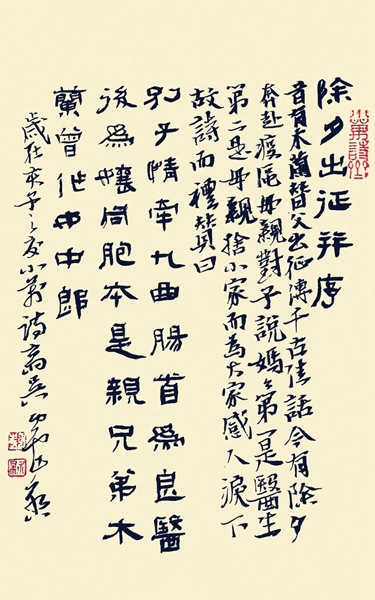 除夕出征并序
昔有木蘭替父出征傳千古佳話今有除夕
奔赴疫區母親對子說媽々第一是醫生
第二是母親捨小家而為大家感人淚下
故詩而禮贊曰
別子情牽九曲腸首為良醫
後為孃同胞本是親兄弟木
蘭曾作女中郎
歲在庚子之夏小詩齋吳